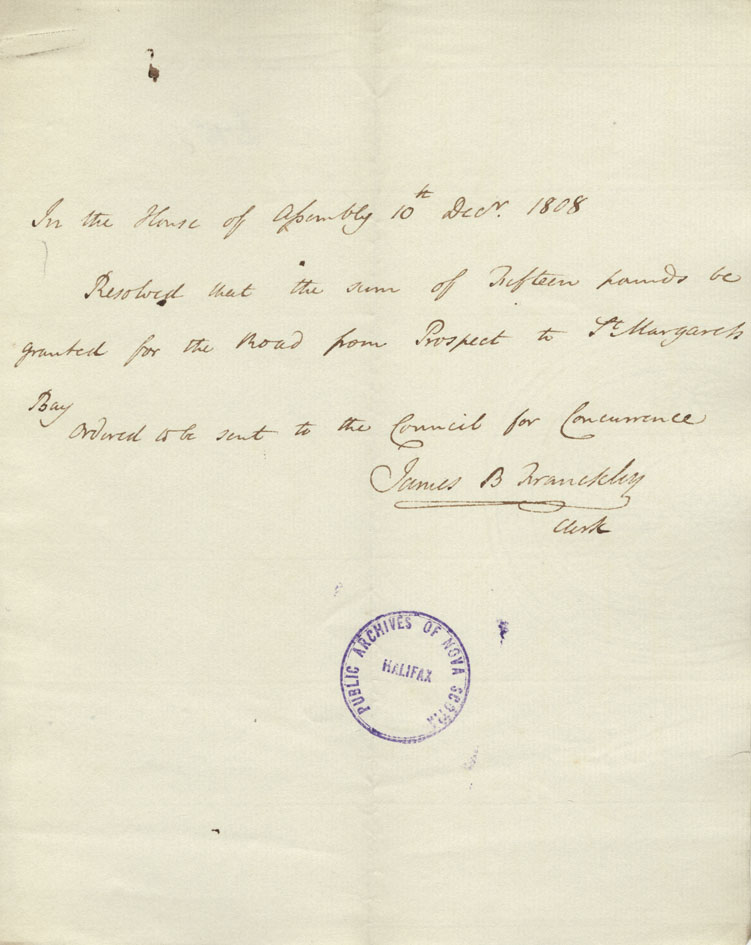 In the House of Assembly 10th Decr. 1808
Resolved that the sum of Fifteen pounds be
granted for the Road from Prospect to St. Margarets
Bay
Ordered to be sent to the Council for Concurrence
James B Franckley
Clerk
PUBLIC ARCHIVES OF NOVA SCOTIA
HALIFAX